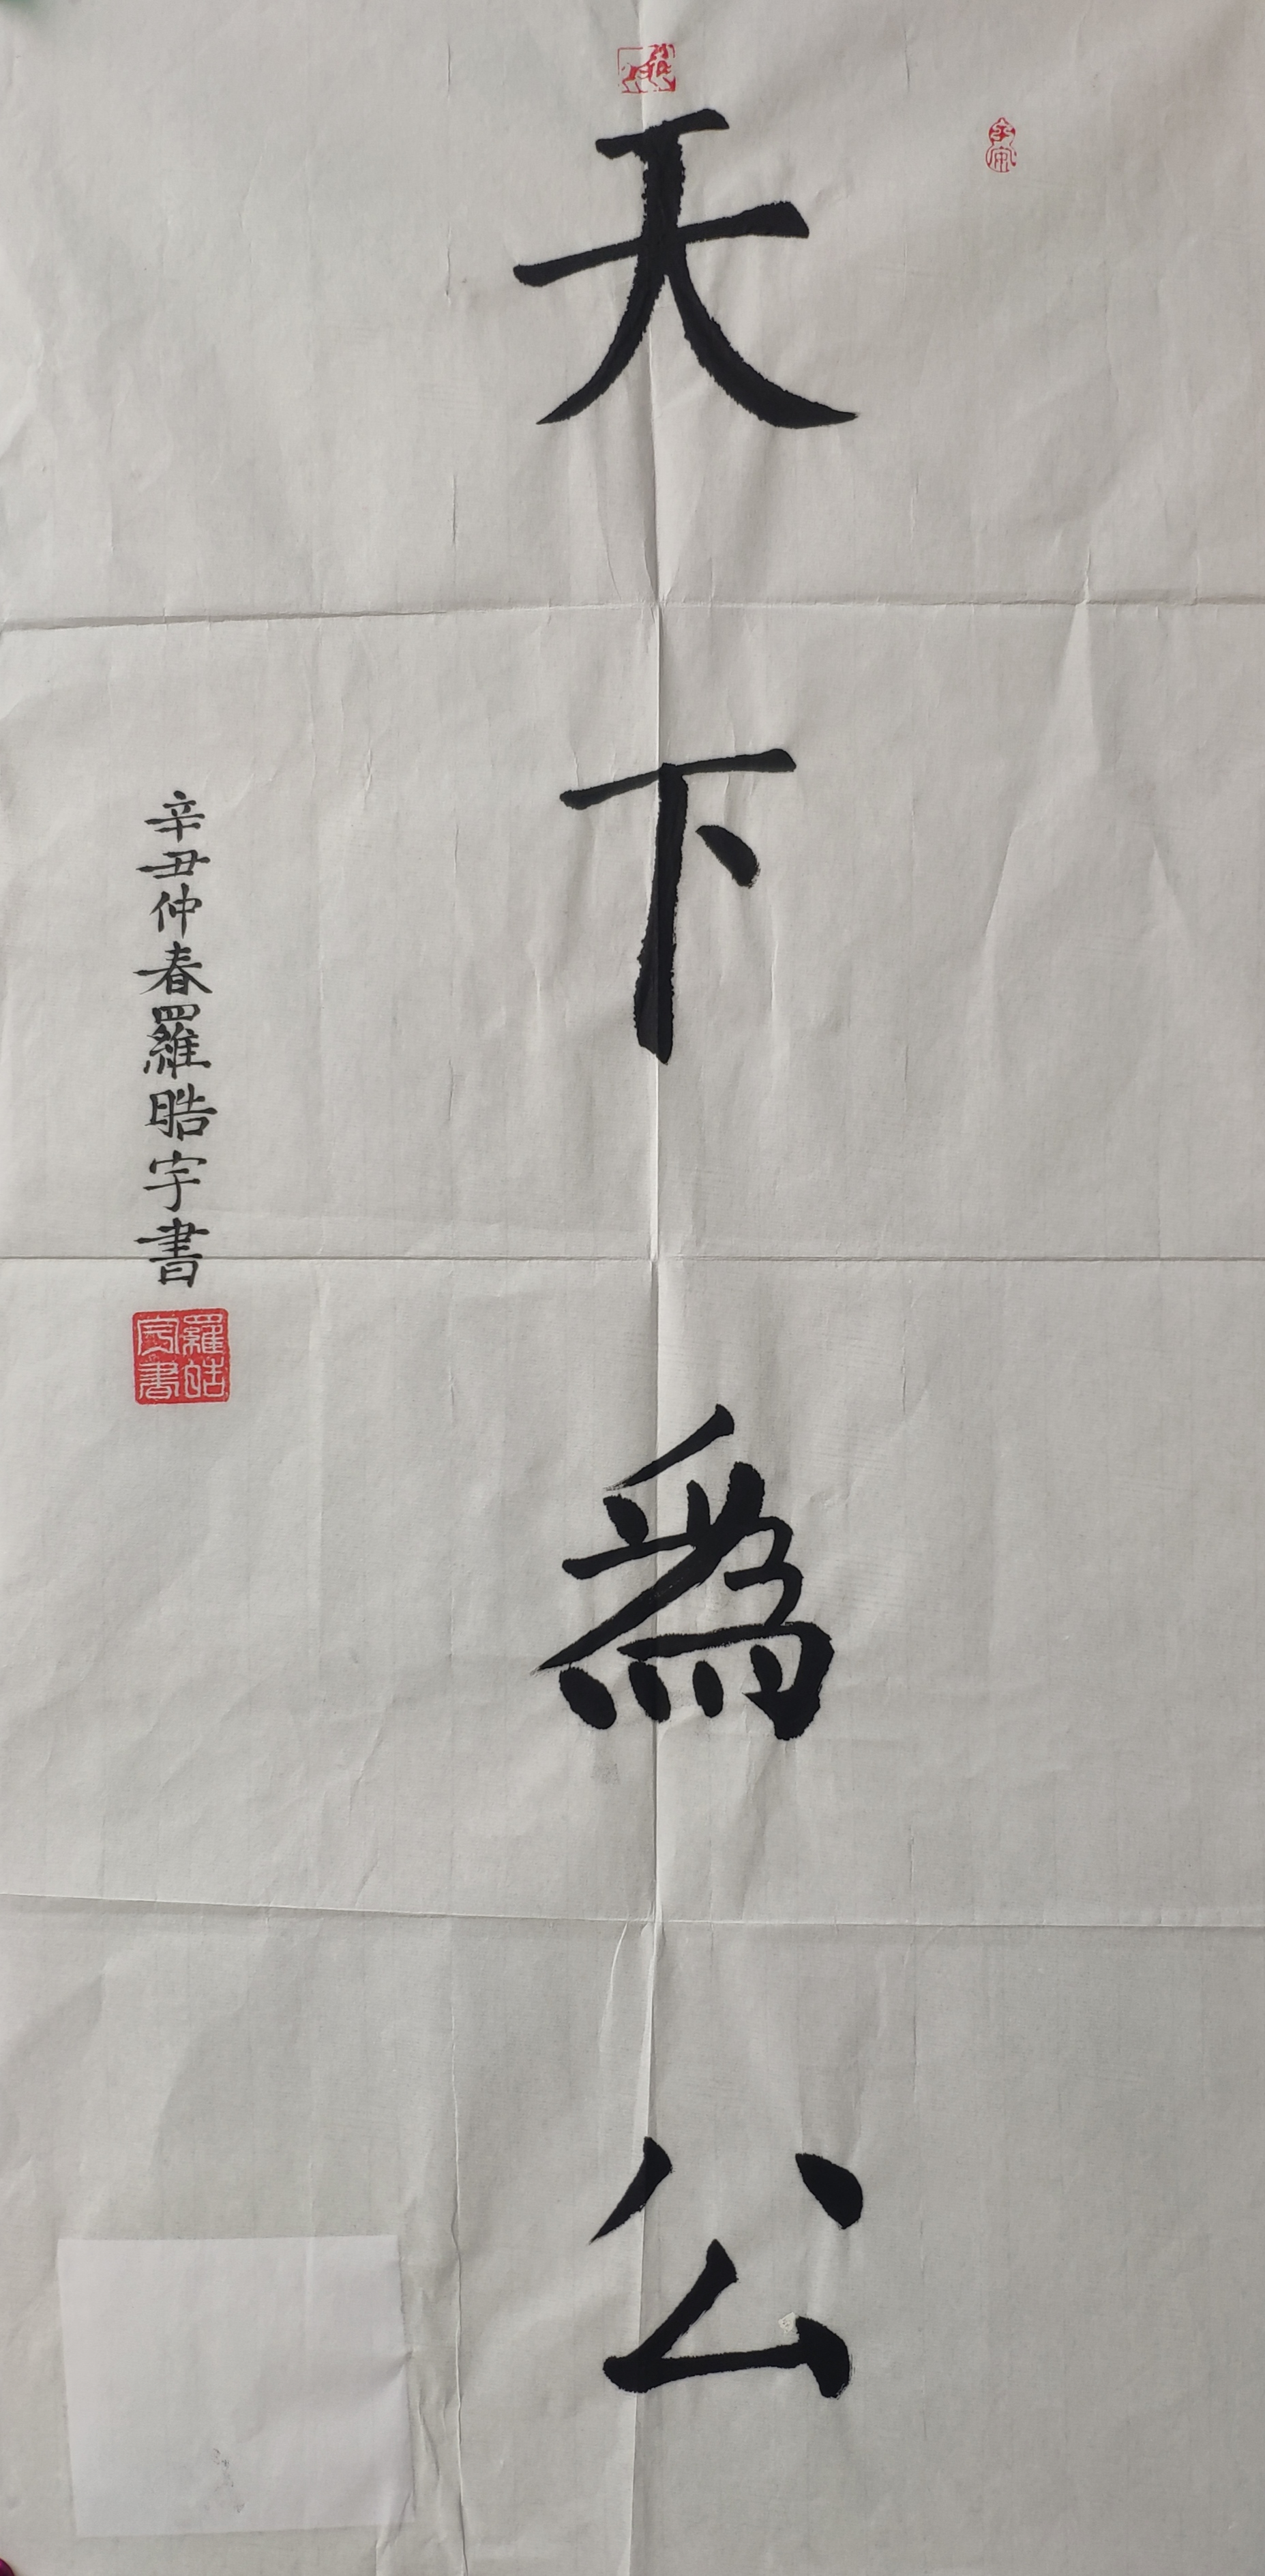 天下為公
辛丑仲春羅晧宇書
羅皓宇書